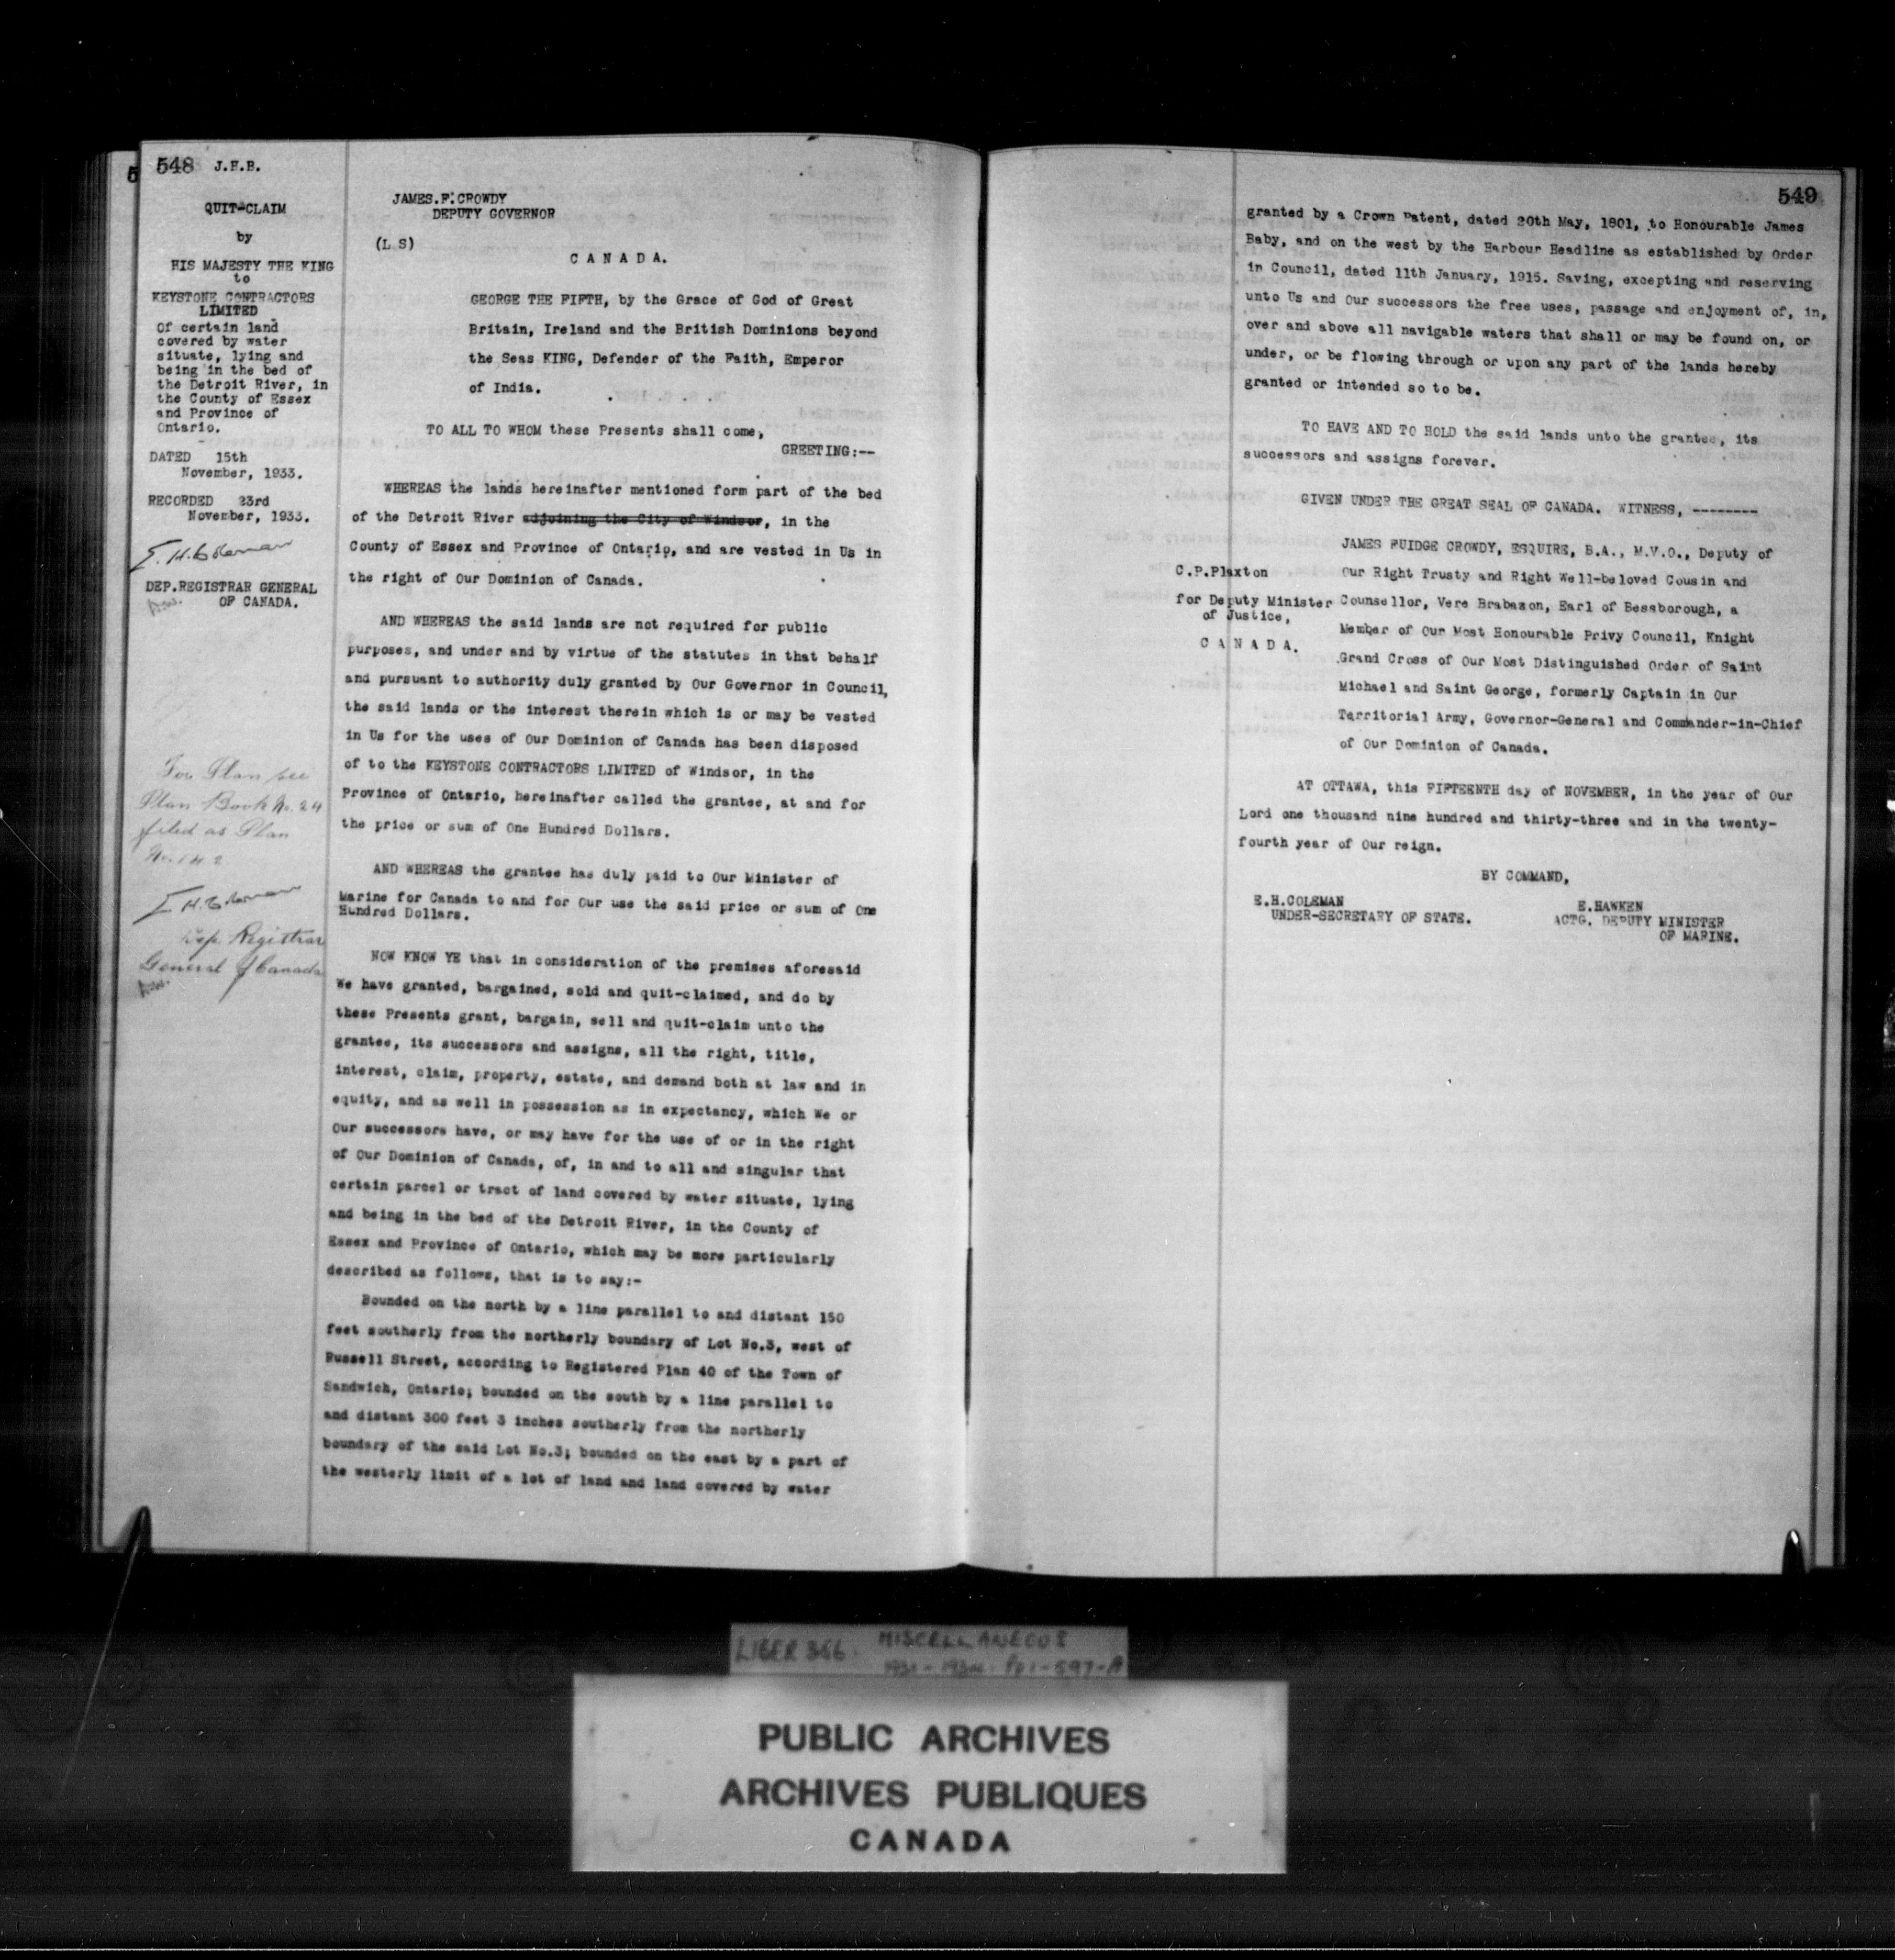 548 J.F.B.
QUIT-CLAIM
by
HIS MAJESTY THE KING
to
KEYSTONE CONTRACTORS
LIMITED
Of certain land
covered by water
situate, lying and
being in the bed of
the Detroit River, in
the County of Essex
and Province of
Ontario.
DATED 15th
November, 1933.
RECORDED 23rd
November, 1933.
E.H.Coleman
DEP.REGISTRAR GENERAL
OF CANADA.
For Plan see
Plan Book No. 24
filed as Plan
No. 142
E.H.Coleman
Dep. Registrar
General of Canada
JAMES.F.CROWDY
DEPUTY GOVERNOR
(L S)
C A N A D A.
GEORGE THE FIFTH, by the Grace of God of Great
Britain, Ireland and the British Dominions beyond
the Seas KING, Defender of the Faith, Emperor
of India.
TO ALL TO WHOM these Presents shall come,
GREETING:--
WHEREAS the lands hereinafter mentioned form part of the bed
of the Detroit River adjoining the City of Windsor, in the
County of Essex and Province of Ontario, and are vested in Us in
the right of Our Dominion of Canada.
AND WHEREAS the said lands are not required for public
purposes, and under and by virtue of the statutes in that behalf
and pursuant to authority duly granted by Our Governor in Council,
the said lands or the interest therein which is or may be vested
in Us for the uses of Our Dominion of Canada has been disposed
of to the KEYSTONE CONTRACTORS LIMITED of Windsor, in the
Province of Ontario, hereinafter called the grantee, at and for
the price or sum of One Hundred Dollars.
AND WHEREAS the grantee has duly paid to Our Minister of
Marine for Canada to and for Our use the said price or sum of One
Hundred Dollars.
NOW KNOW YE that in consideration of the premises aforesaid
We have granted, bargained, sold and quit-claimed, and do by
these Presents grant, bargain, sell and quit-claim unto the
grantee, its successors and assigns, all the right, title,
interest, claim, property, estate, and demand both at law and in
equity, and as well in possession as in expectancy, which We or
Our successors have, or may have for the use of or in the right
of Our Dominion of Canada, of, in and to all and singular that
certain parcel or tract of land covered by water situate, lying
and being in the bed of the Detroit River, in the County of
Essex and Province of Ontario, which may be more particularly
described as follows, that is to say:-
Bounded on the north by a line parallel to and distant 150
feet southerly from the northerly boundary of Lot No.3, west of
Russell Street, according to Registered Plan 40 of the Town of
Sandwich, Ontario; bounded on the south by a line parallel to
and distant 300 feet 3 inches southerly from the northerly
boundary of the said Lot No.3; bounded on the east by a part of
the westerly limit of a lot of land and land covered by water
549
granted by a Crown Patent, dated 20th May, 1801, to Honourable James
Baby, and on the west by the Harbour Headline as established by Order
in Council, dated 11th January, 1915. Saving, excepting and reserving
unto Us and Our successors the free uses, passage and enjoyment of, in,
over and above all navigable waters that shall or may be found on, or
under, or be flowing through or upon any part of the lands hereby
granted or intended so to be.
TO HAVE AND TO HOLD the said lands unto the grantee, its
successors and assigns forever.
GIVEN UNDER THE GREAT SEAL OF CANADA. WITNESS, --------
JAMES FUIDGE CROWDY, ESQUIRE, B.A., M.V.O., Deputy of
Our Right Trusty and Right Well-beloved Cousin and
Counsellor, Vere Brabazon, Earl of Bessborough, a
Member of Our Most Honourable Privy Council, Knight
Grand Cross of Our Most Distinguished Order of Saint
Michael and Saint George, formerly Captain in Our
Territorial Army, Governor-General and Commander-in-Chief
of Our Dominion of Canada.
C.P.Plaxton
for Deputy Minister
of Justice,
C A N A D A.
AT OTTAWA, this FIFTEENTH day of NOVEMBER, in the year of Our
Lord one thousand nine hundred and thirty-three and in the twenty-
fourth year of Our reign.
BY COMMAND,
E.H.COLEMAN
UNDER-SECRETARY OF STATE.
E.HAWKEN
ACTG. DEPUTY MINISTER
OF MARINE.
LIBER 356. MISCELLANEOUS
1931-1934. Pp 1-597-A
PUBLIC ARCHIVES
ARCHIVES PUBLIQUES
CANADA